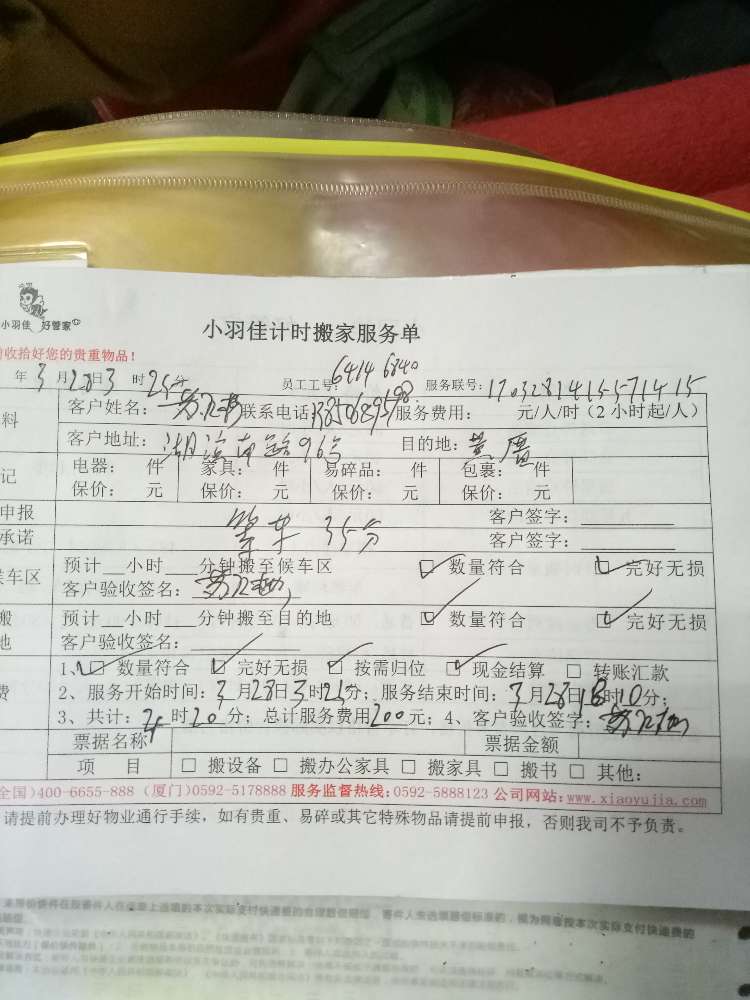 小羽佳 好管家
小羽佳计时搬家服务单
收拾好您的贵重物品！
年3月28日3时25分 员工工号：6414 6840 服务联号：1703281415571415
料 客户姓名： 联系电话： 服务费用： 元/人/时（2小时起/人）
客户地址：湖滨南路96号 目的地：黄厝
记 电器： 件 家具： 件 易碎品： 件 包裹： 件
保价： 元 保价： 元 保价： 元 保价： 元
申报 等车 35分 客户签字：
承诺 客户签字：
候车区 预计 小时 分钟搬至候车区 数量符合 完好无损
客户验收签名：
搬 预计 小时 分钟搬至目的地 数量符合 完好无损
地 客户验收签名：
1、 数量符合 完好无损 按需归位 现金结算 转账汇款
费 2、服务开始时间：3月28日3时25分；服务结束时间：3月28日 时10分；
3、共计： 时20分；总计服务费用200元；4、客户验收签字：
票据名称 票据金额
项 目 搬设备 搬办公家具 搬家具 搬书 其他：
全国)400-6655-888 (厦门)0592-5178888 服务监督热线：0592-5888123 公司网站：www.xiaoyujia.com
请提前办理好物业通行手续，如有贵重、易碎或其它特殊物品请提前申报，否则我司不予负责。